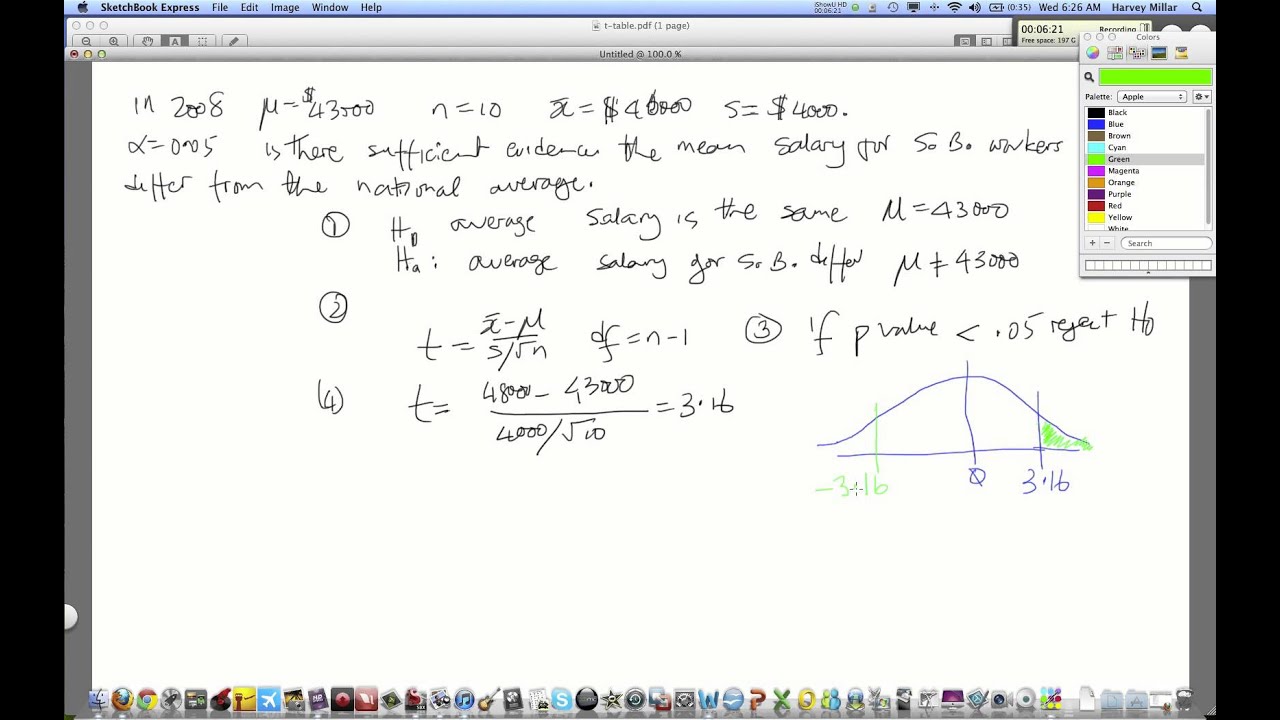 SketchBook Express File Edit Image Window Help
iShowU HD
00:06:21
(0:35) Wed 6:26 AM Harvey Millar
t-table.pdf (1 page)
00:06:21 Recording
Free space: 197 G
Untitled @ 100.0 %
Colors
Palette: Apple
Black
Blue
Brown
Cyan
Green
Magenta
Orange
Purple
Red
Yellow
White
Search
In 2008 μ=$43000 n=10 x̄=$ s=$4000.
α=0.05 is there sufficient evidence the mean salary for S.B. workers
differ from the national average.
① H0 average salary is the same μ=43000
Ha: average salary for S.B. differ μ≠43000
②
t = x̄-μ / s/√n df=n-1 ③ If p value < .05 reject H0
(4) t = 48000 - 43000 / 4000/√10 = 3.16
-3.16 0 3.16